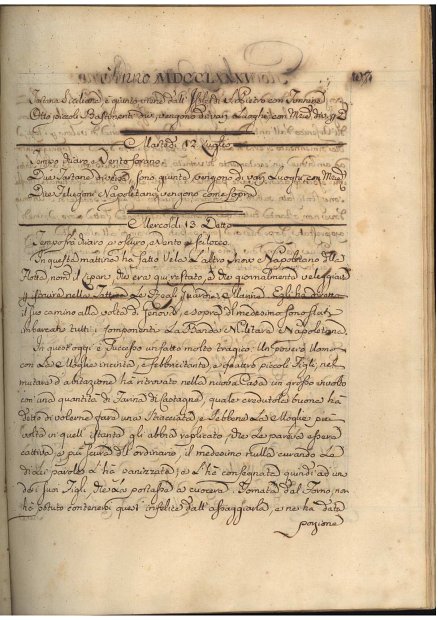 Anno MDCCLXXXV
Tartana Siciliana è giunta viene dall' di S. Pietro con Tonnina
Otto piccoli Bastimenti due vengono di varj Luoghi con
Martedì 12 Luglio
Tempo chiaro e Vento forano
Due Tartane diverse, sono giunte vengono di varj Luoghi con
Due Pelegoni Napoletani vengono come sopra
Mercoldì 13 Detto
Tempo fra chiaro e oscuro e Vento e scilocco
In questa mattina ha fatto Vela L'altro Nave Napoletano della
Flotta, nom.º il che era qui restato, e che giornalmente veleggiava
le Reali Egli ha diretto
il suo camino alla volta di Genova, e sopra il medesimo sono stati
imbarcati tutti i componenti La Banda Militare Napoletana
In quest'oggi è successo un fatto molto tragico. Un povero Uomo
con La Moglie incinta, e febbricitante, e quattro piccoli Figli, nel
mutare d'abitazione hà ritrovato nella nuova Casa un grosso involto
con una quantità di Farina di Castagna, quale credutola buona hà
detto di volerne fare una Stiacciata e sebbene La Moglie più
volte in quell' istante gli abbia replicato che Le pareva essere
cattiva, e più scura dell' ordinario, il medesimo nulla curando Le
di Lei parole L'hà e L'hà consegnata quindi ad un
dei suoi Figli che La portasse a cuocere. Tornata dal Forno, non
hà potuto contenersi quest' infelice dall' assaggiarla, e ne hà data
porzione